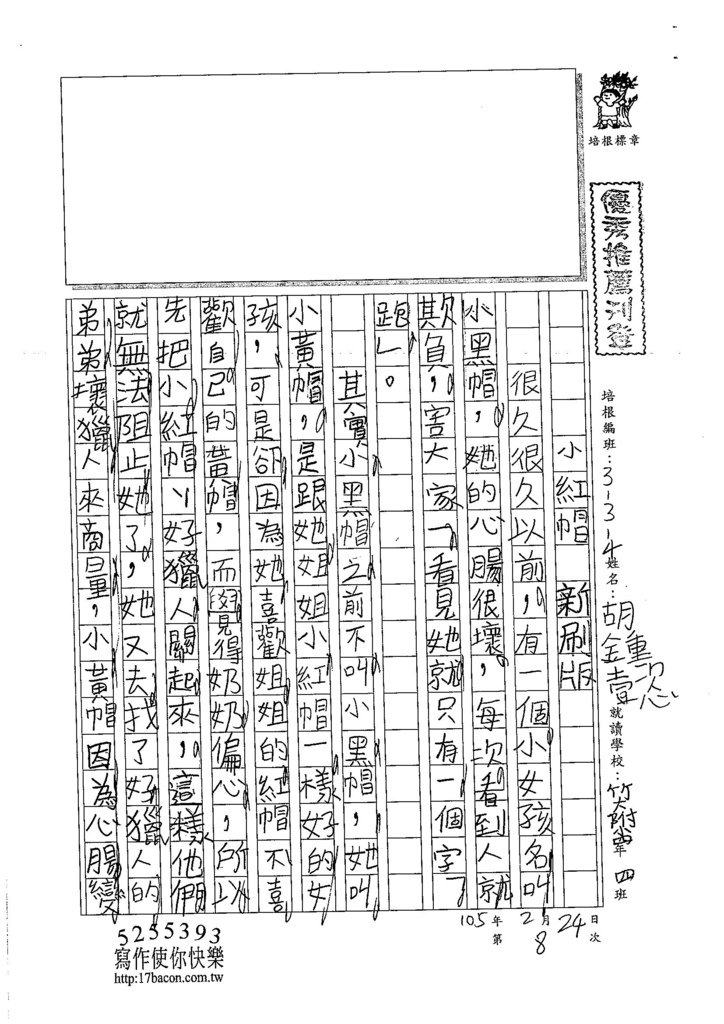 培根標章
優秀推薦刊登
培根編班：3-3-4 姓名：胡 就讀學校：竹大附小 四班
105年 2月 24日
第 8 次
小紅帽 新刷版
很久很久以前，有一個小女孩名叫
小黑帽，她的心腸很壞，每次看到人就
欺負，害大家一看見她就只有一個字「
跑」。
其實小黑帽之前不叫小黑帽，她叫
小黃帽，是跟她姐姐小紅帽一樣好的女
孩，可是卻因為她喜歡姐姐的紅帽不喜
歡自己的黃帽，而覺得奶奶偏心，所以
先把小紅帽、好獵人關起來，這樣他們
就無法阻止她了，她又去找了好獵人的
弟弟壞獵人來商量，小黃帽因為心腸變
5255393
寫作使你快樂
http:17bacon.com.tw